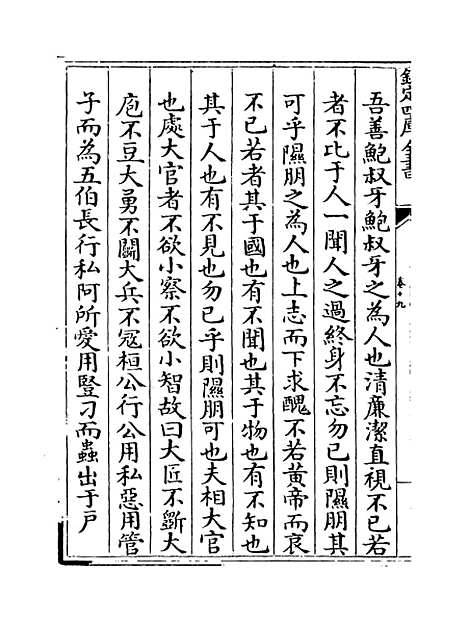 欽定四庫全書
卷十九
吾善鮑叔牙鮑叔牙之為人也清廉潔直視不已若
者不比于人一聞人之過終身不忘勿已則隰朋其
可乎隰朋之為人也上志而下求醜不若黃帝而哀
不已若者其于國也有不聞也其于物也有不知也
其于人也有不見也勿已乎則隰朋可也夫相大官
也處大官者不欲小察不欲小智故曰大匠不斵大
庖不豆大勇不鬭大兵不寇桓公行公用私惡用管
子而為五伯長行私阿所愛用豎刁而蟲出于戸